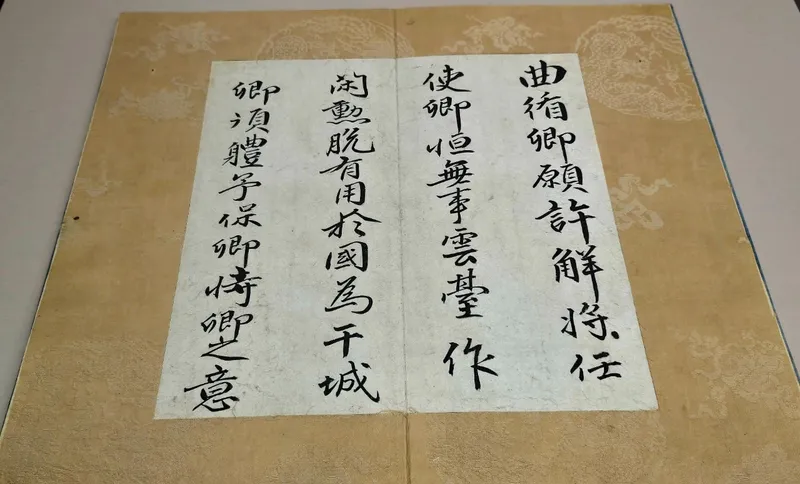 曲循卿願許解將任
使卿恒無事雲臺作
閑勳脫有用於國為干城
卿須體予保卿恃卿之意